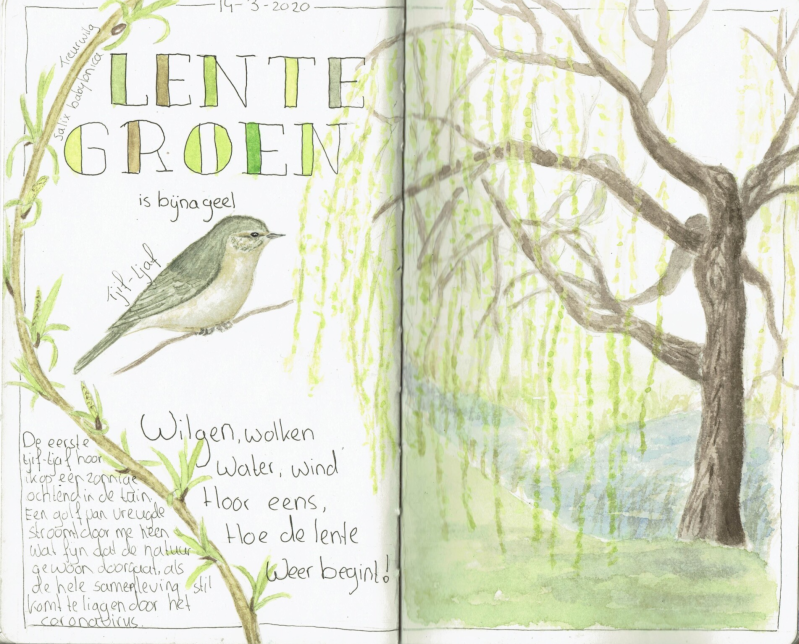 14-3-2020
Treurwilg
Salix babylonica
LENTE
GROEN
is bijna geel
tjif-tjaf
Wilgen, wolken
Water, wind
Hoor eens,
Hoe de lente
Weer begint!
De eerste
tjif-tjaf hoor
ik op een zonnige
ochtend in de tuin.
Een golf van vreugde
stroomt door me heen
Wat fijn dat de natuur
gewoon doorgaat, als
de hele samenleving stil
komt te liggen door het
coronavirus.